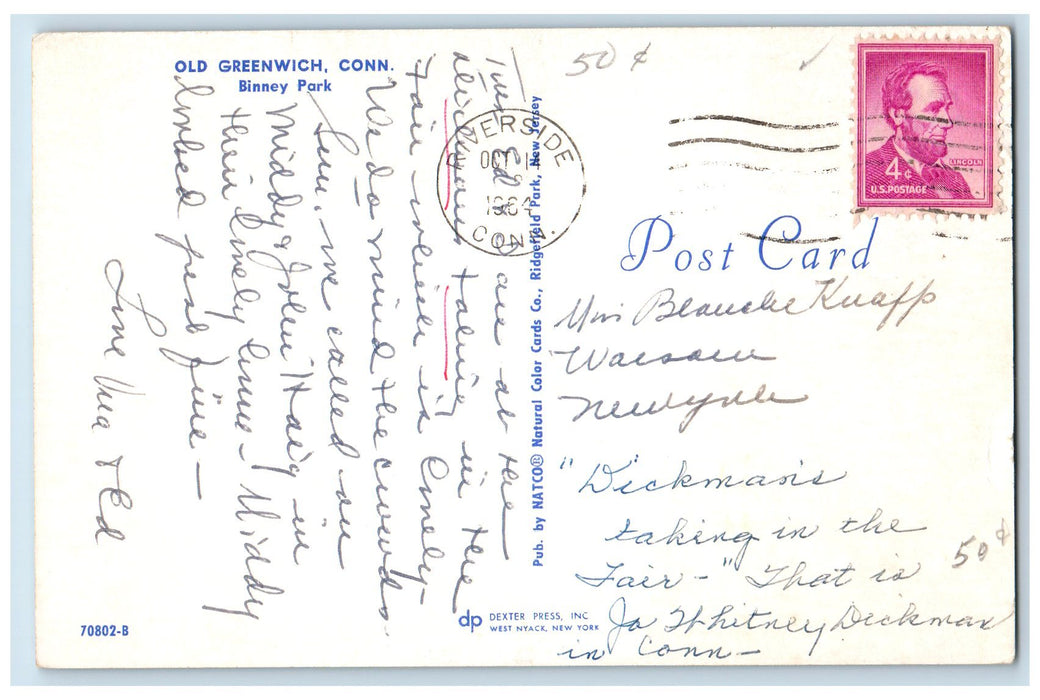 OLD GREENWICH, CONN.
Binney Park
50 ¢
RIVERSIDE
OCT 14
1964
CONN.
LINCOLN
4¢
U.S. POSTAGE
Post Card
Ed & are at the
Dickmans taking in the
Fair which is lovely-
We do mind the crowds.
Sun. we called on
Middy & John Haig in
their lovely home - Middy
looked just fine -
Love & Ed
Pub. by NATCO® Natural Color Cards Co., Ridgefield Park, New Jersey
Miss Blanche Knapp
Warsaw
New York
"Dickman's
taking in the
Fair -" That is
Jo Whitney Dickman
in Conn-
50 ¢
70802-B
dp DEXTER PRESS, INC
WEST NYACK, NEW YORK